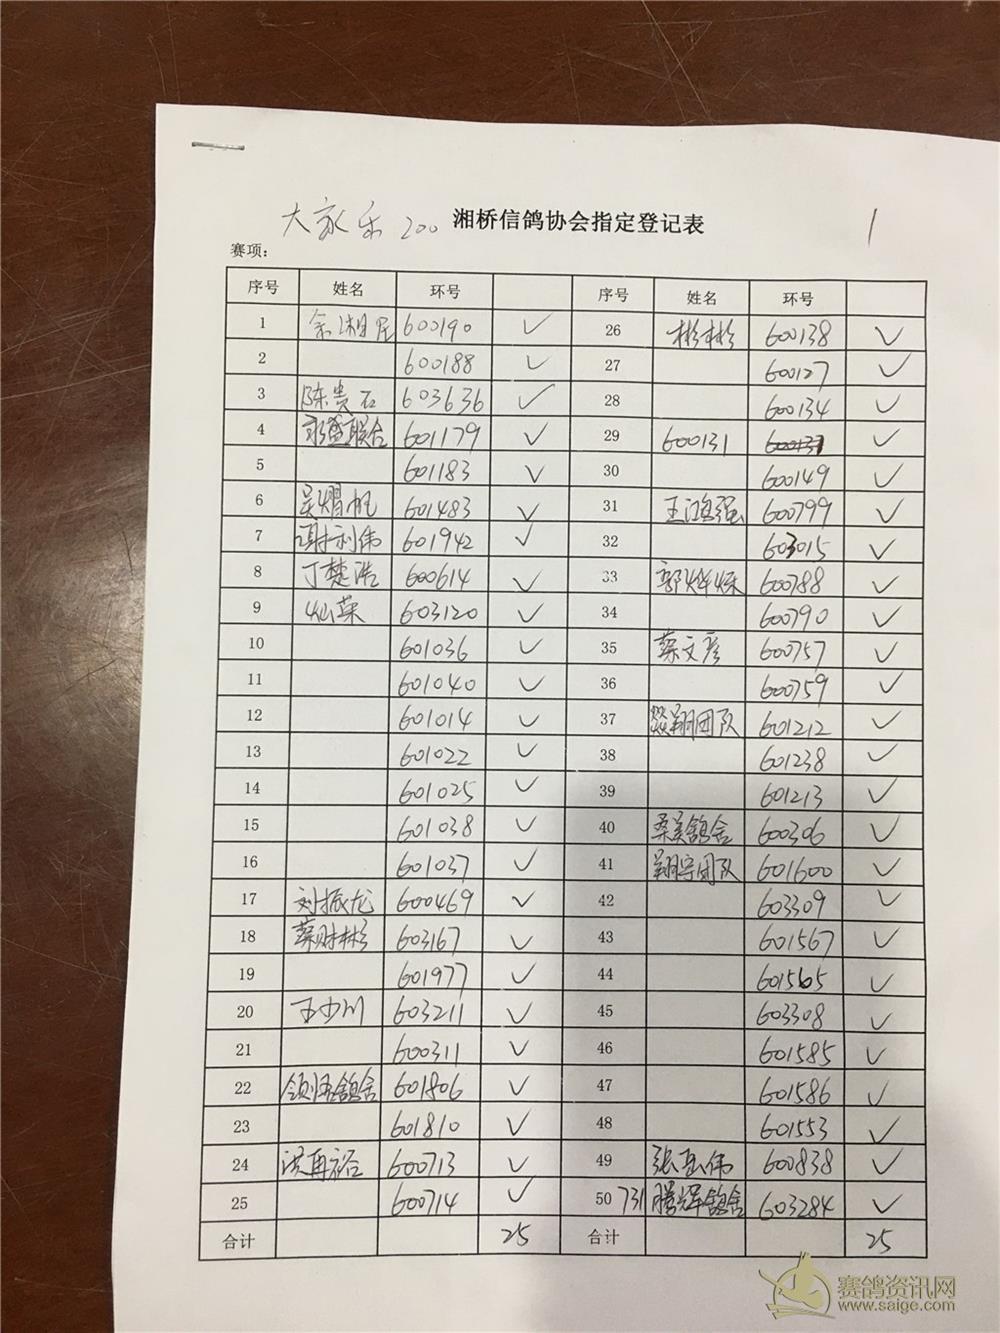 大家乐 200 湘桥信鸽协会指定登记表 1
赛项：
序号 姓名 环号 序号 姓名 环号
1 余湘 600190 ✓ 26 彬彬 600138 ✓
2 600188 ✓ 27 600127 ✓
3 陈贵石 603636 ✓ 28 600134 ✓
4 永盛联合 601179 ✓ 29 600131 ✓
5 601183 ✓ 30 600149 ✓
6 吴熠帆 601483 ✓ 31 王鸿强 600799 ✓
7 谢利伟 601942 ✓ 32 603015 ✓
8 丁楚浩 600614 ✓ 33 郭烨烁 600788 ✓
9 灿荣 603120 ✓ 34 600790 ✓
10 601036 ✓ 35 蔡文彦 600757 ✓
11 601040 ✓ 36 600759 ✓
12 601014 ✓ 37 燚翔团队 601212 ✓
13 601022 ✓ 38 601238 ✓
14 601025 ✓ 39 601213 ✓
15 601038 ✓ 40 鸽舍 600306 ✓
16 601037 ✓ 41 翔宇团队 601600 ✓
17 刘振龙 600469 ✓ 42 603309 ✓
18 蔡财彬 603167 ✓ 43 601567 ✓
19 601977 ✓ 44 601565 ✓
20 王少川 603211 ✓ 45 603308 ✓
21 600311 ✓ 46 601585 ✓
22 鸽舍 601806 ✓ 47 601586 ✓
23 601810 ✓ 48 601553 ✓
24 洪再裕 600713 ✓ 49 张岳伟 600838 ✓
25 600714 ✓ 50 731 腾辉鸽舍 603284 ✓
合计 25 合计 25
赛鸽资讯网
www.saige.com